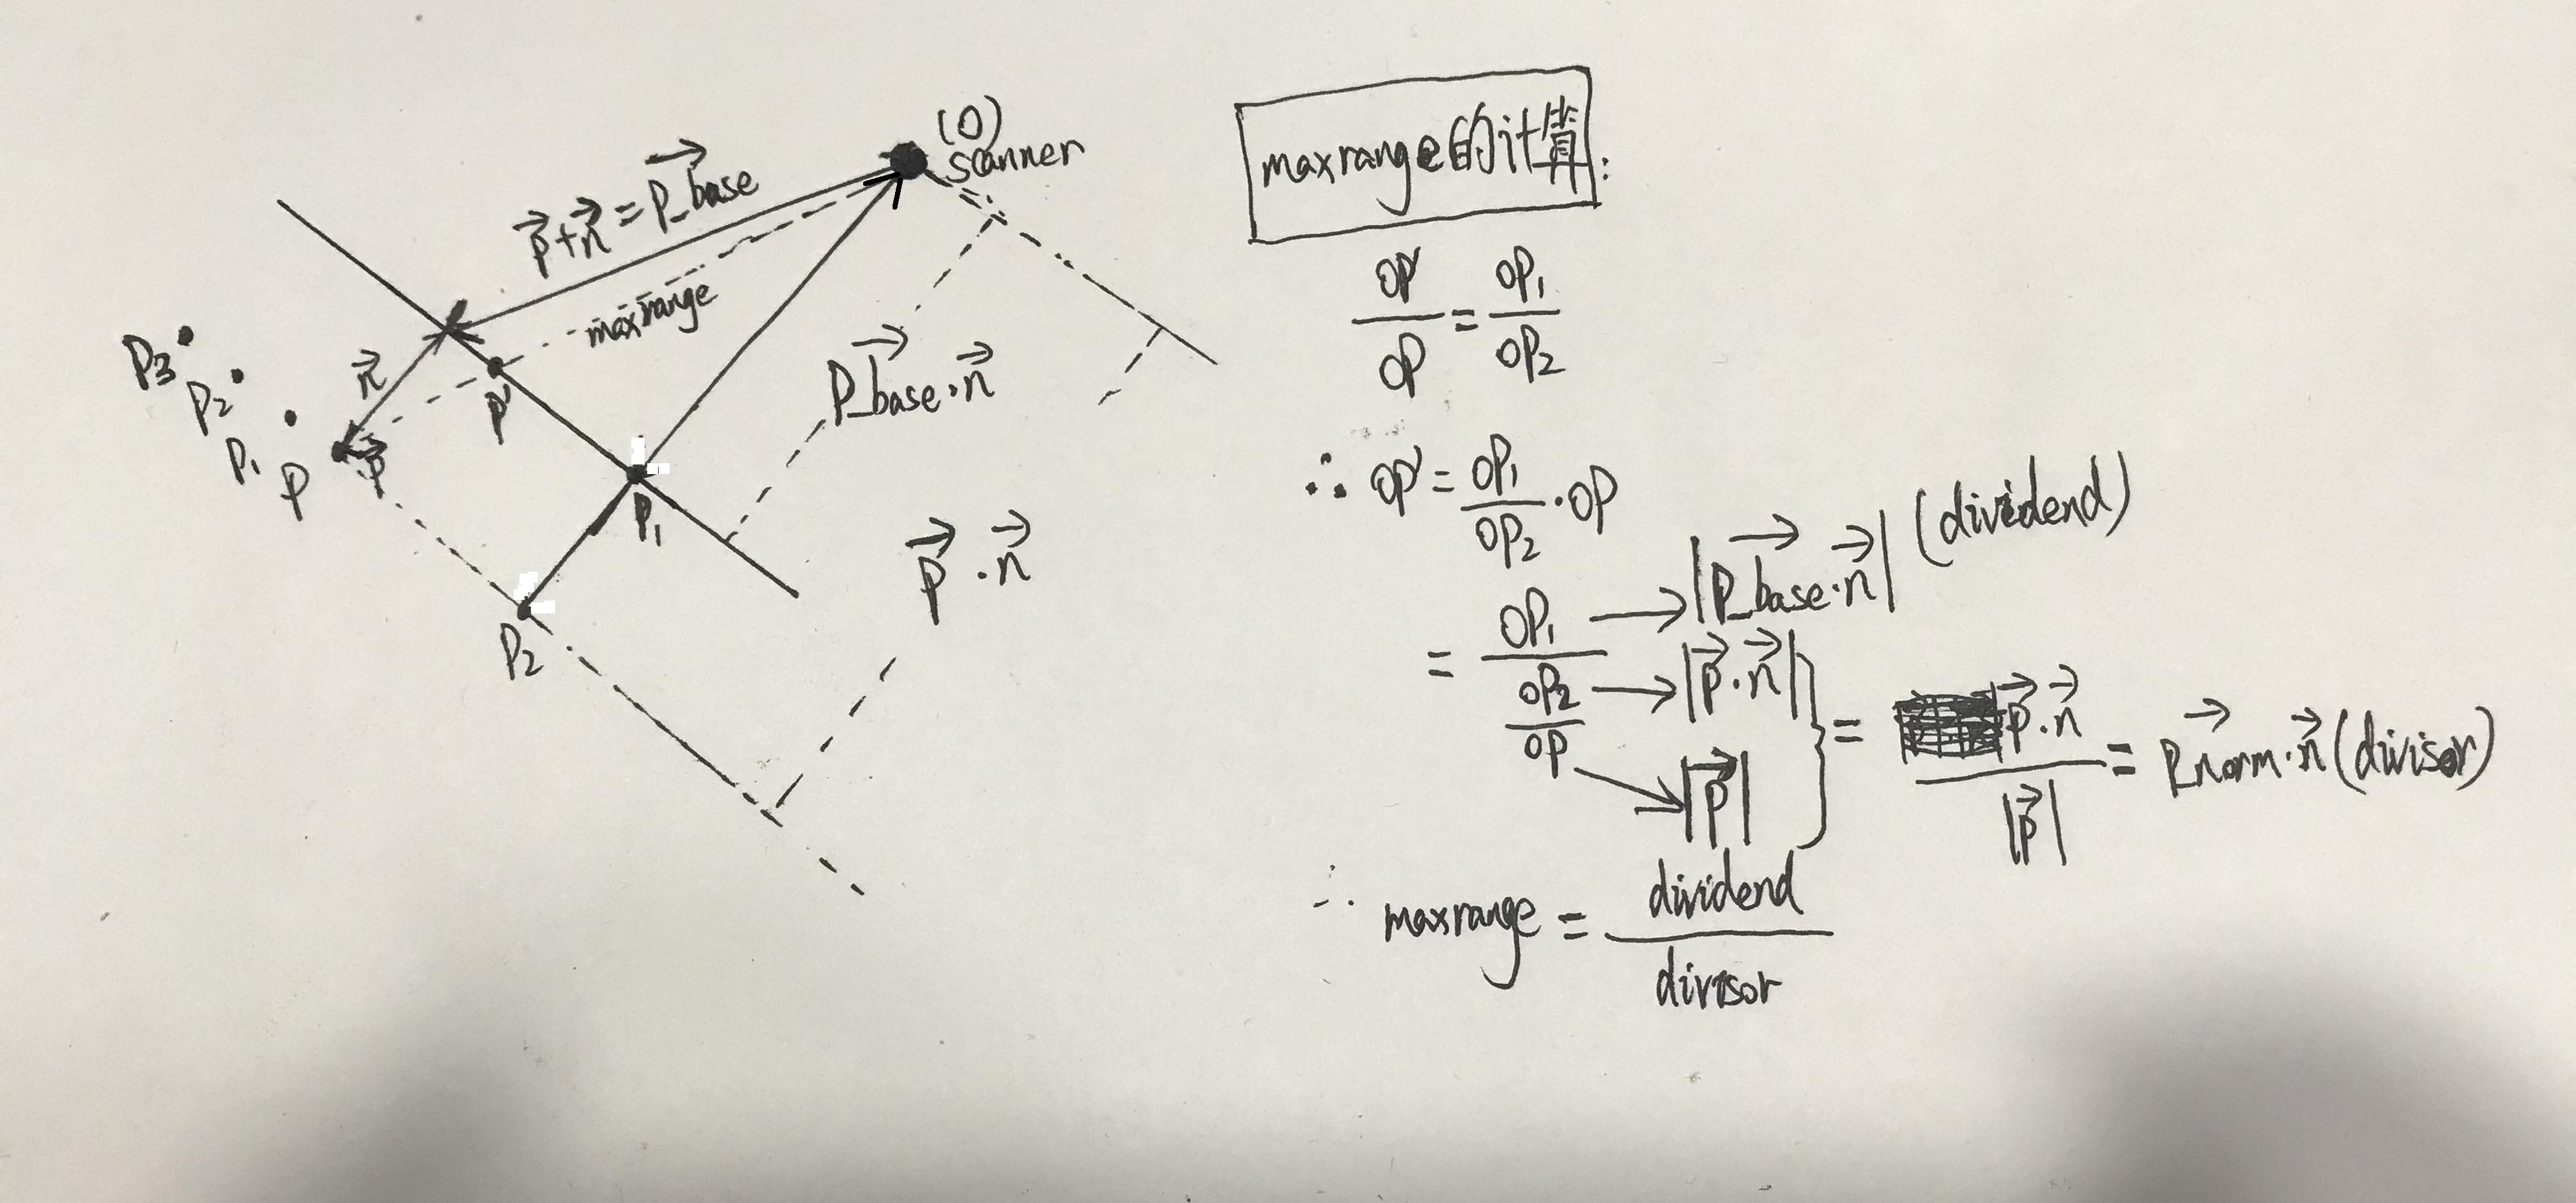 (O)
scanner
p⃗+n⃗=p_base⃗
maxrange
P3
P2
P1
P
n⃗
p⃗
P'
P_base⃗·n⃗
P1
p⃗·n⃗
P2
maxrange的计算:
OP'/OP=OP1/OP2
∴ OP'=OP1/OP2·OP
=OP1/(OP2/OP)
OP1→|P_base⃗·n⃗| (dividend)
OP2→|p⃗·n⃗|
OP→|p⃗|
=p⃗·n⃗/|p⃗|=p_norm⃗·n⃗(divisor)
∴ maxrange=dividend/divisor